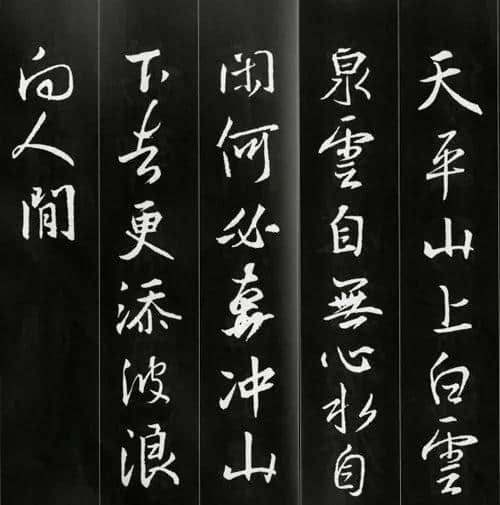 天平山上白雲
泉雲自無心水自
闲何必奔冲山
下去更添波浪
向人間